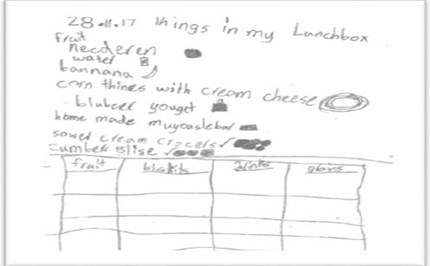 28.11.17 things in my Lunchbox
fruit
necderen
water
bannana
corn things with cream cheese
blubeer youget
home made muyoaslebar
sower cream cracels
cumber slise
fruit biskits drinks grains